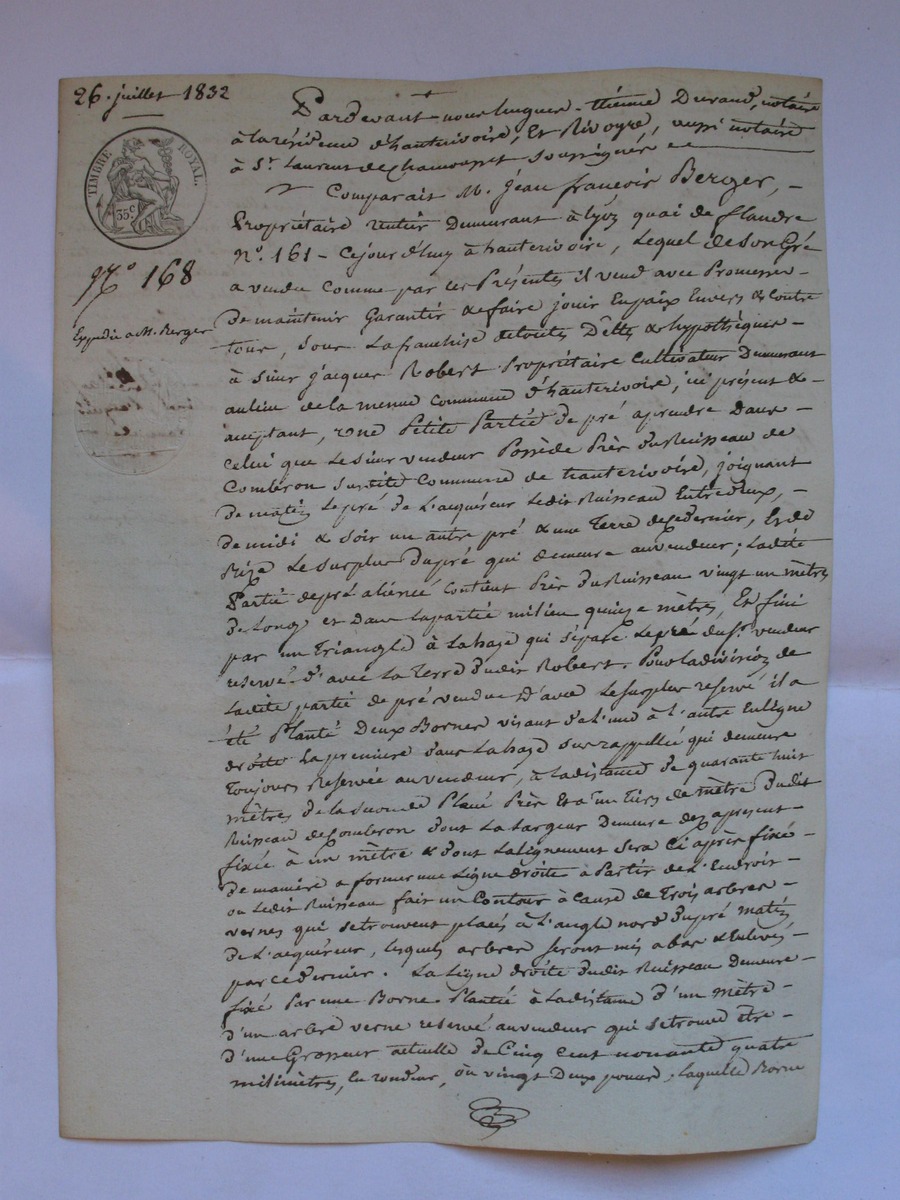 26. juillet 1832
TIMBRE ROYAL.
35c
N.o 168
Expedié a M. Berger
Pardevant nous hugues-étienne Durand, notaire
à la résidence d'hauterivoire, Et Rivoyre, aussi notaire
à St. Laurent de Chamousset soussignés
Comparait M. jean françois Berger,
Propriétaire rentier Demeurant à lyon quai de flandre
N.o 161 - Cejourd'huy à hauterivoire, Lequel de son Gré
a vendu Comme par les Présentes il vend avec Promesse
De maintenir Garantir & faire jouir En paix Envers & Contre
tous, sous la franchise de toutes Dettes & hypothèques
à sieur jacques Robert Propriétaire Cultivateur Demeurant
au lieu de la menue Commune d'hauterivoire, ici présent &
acceptant, une Petite Partie de pré aprendre dans
Celui que le sieur vendeur Possède Près du Ruisseau de
Combron susdite Commune de hauterivoire, joignant
De matin le pré de l'acquéreur ledit Ruisseau Entredeux,
De midi & soir un autre pré & une Terre de ce dernier, Et de
Bize Le surplus Dupré qui demeure au vendeur; ladite
Partie de pré aliénée Contient Près du Ruisseau vingt un mètres
De Long et dans la partie milieu quinze mètres, Et fini
par un Triangle à la haye qui sépare le pré du sr. vendeur
reservé d'avec la Terre dudit Robert. Pour la division de
Ladite partie de pré vendue D'avec Le surplus reservé il a
été Planté Deux Bornes visant de l'une à l'autre En ligne
droite La première dans la haye sus rappellée qui demeure
Toujours Reservée au vendeur, à la distance de quarante huit
mètres de la seconde Placé Près Et à un tiers de mètre dudit
Ruisseau de Combron dont la Largeur Demeure dez apresent
fixée à un mètre & dont l'alignement sera Ci après fixé
De manière a former une Ligne droite à Partir de l'Endroit
ou ledit Ruisseau fait un Contour à Cause de Trois arbres
vernes qui se trouvent placés à l'angle nord du pré matin
De l'acquéreur, lesquels arbres seront mis a bas & Enlevés
par ce dernier. La Ligne droite dudit Ruisseau Demeure
fixé Par une Borne Plantée à la distance d'un mètre
d'un arbre verne reservé au vendeur qui se trouve être
d'une Grosseur actuelle de Cinq cent nonante quatre
milimètres, En rondeur, ou vingt Deux pouces, laquelle Borne